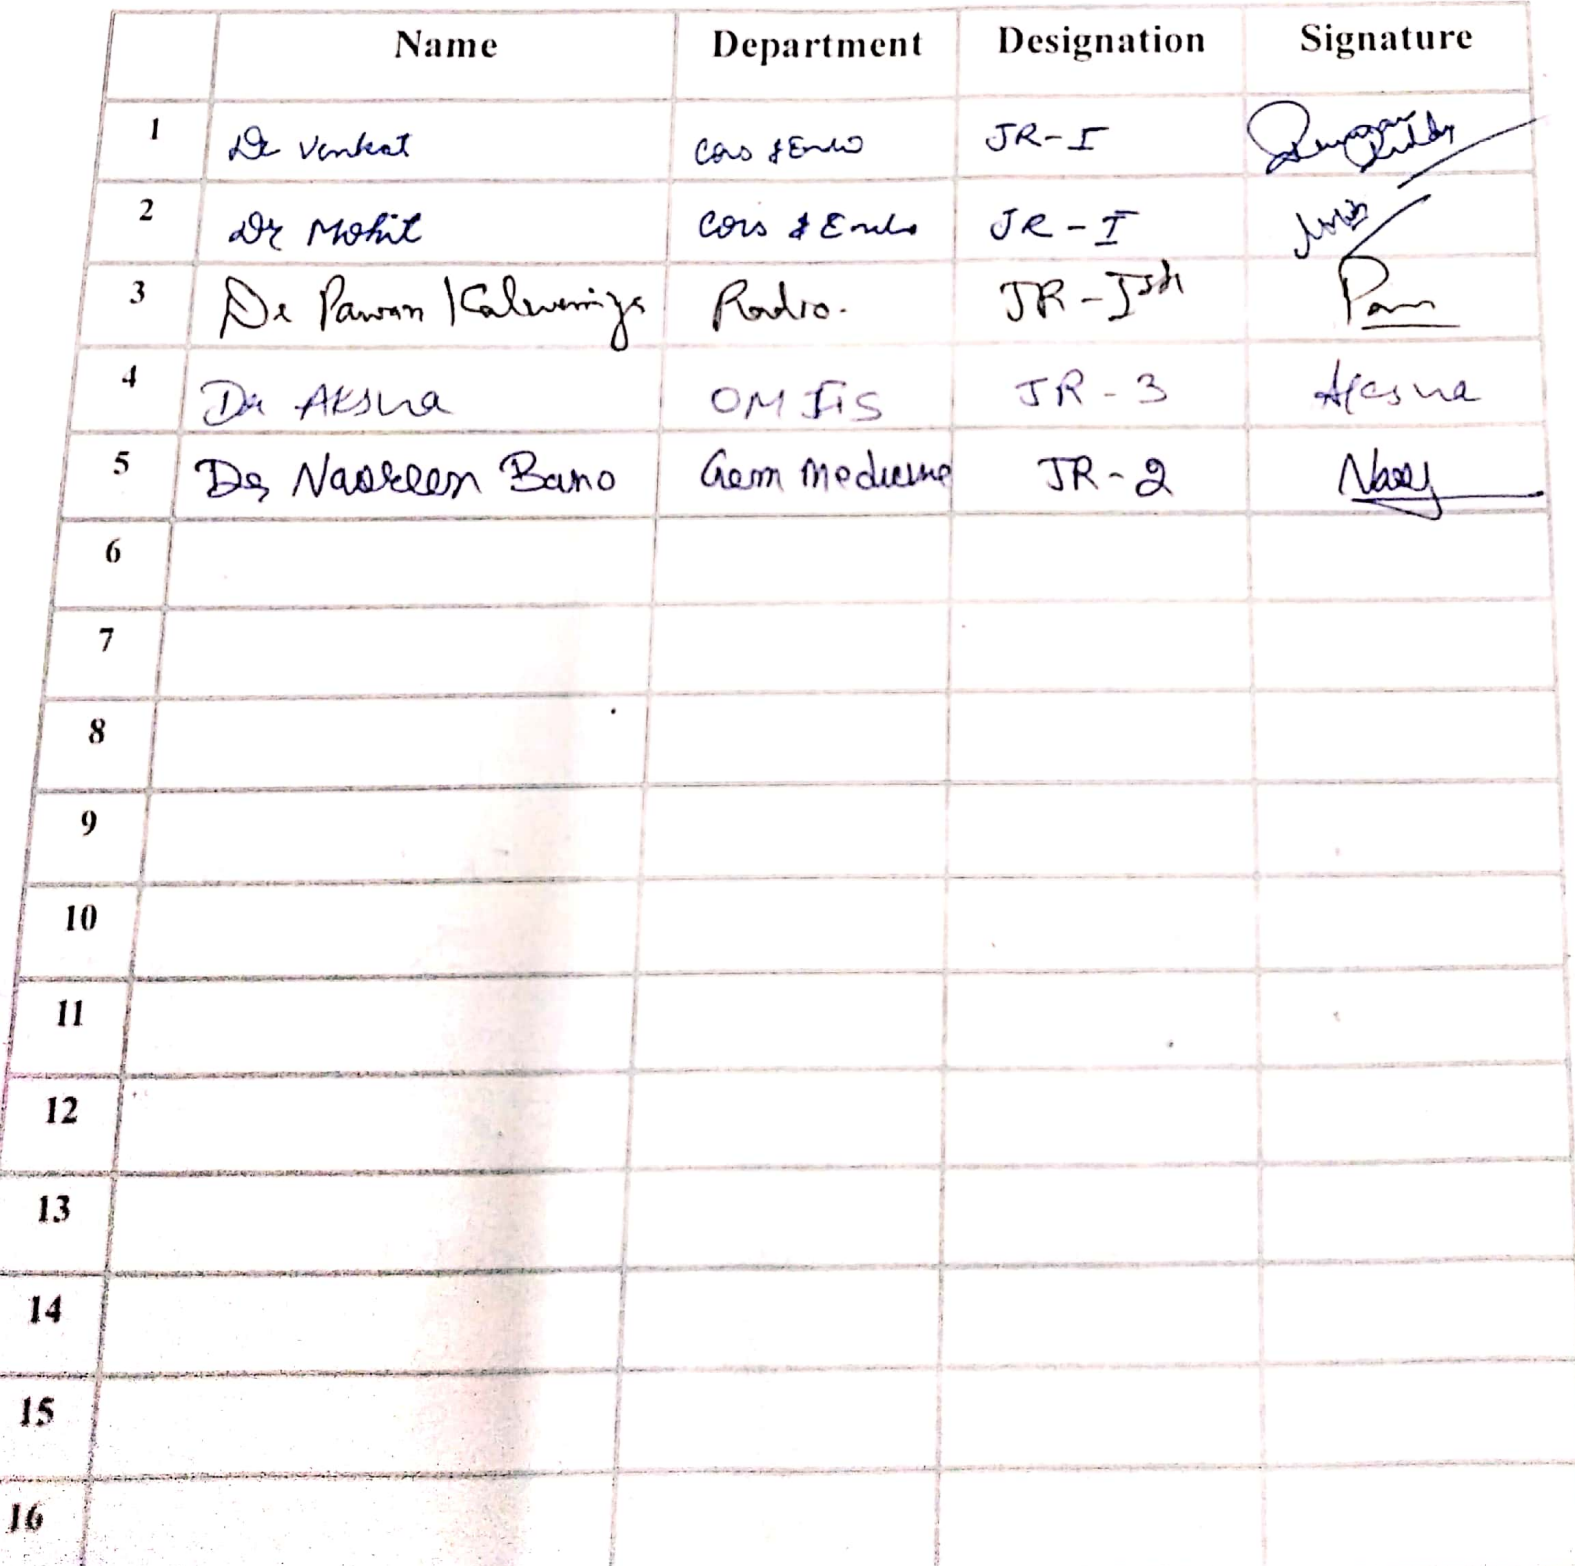 Name Department Designation Signature
1 Dr Venkat Cons & Endo JR-I
2 Dr Mohit Cons & Endo JR-I
3 Dr Pawan Radio. JR-Ist
4 Dr Aksha JR-3
5 Dr Nasreen Bano Gen Medicine JR-2
6
7
8
9
10
11
12
13
14
15
16